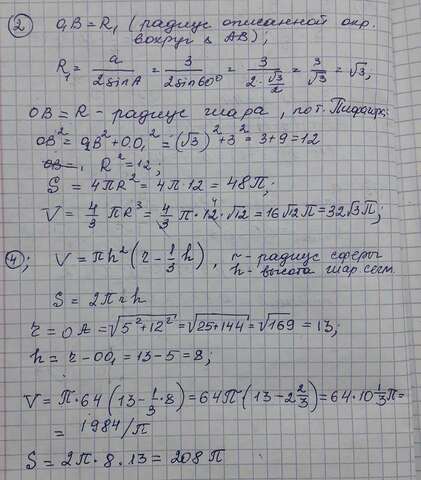 ② O₁B = R₁ (радиус описанной окр.
вокруг Δ AB);
R₁ = a/(2sinA) = 3/(2sin60°) = 3/(2·√3/2) = 3/√3 = √3;
OB = R - радиус шара, по т. Пифагора:
OB² = O₁B² + OO₁² = (√3)² + 3² = 3 + 9 = 12
R² = 12;
S = 4πR² = 4π·12 = 48π;
V = 4/3 πR³ = 4/3 π·12·√12 = 16√12π = 32√3π;
④; V = πh²(r - 1/3 h), r - радиус сферы
h - высота шар. сегм.
S = 2πrh
r = OA = √(5² + 12²) = √(25 + 144) = √169 = 13;
h = r - OO₁ = 13 - 5 = 8;
V = π·64(13 - 1/3·8) = 64π(13 - 2 2/3) = 64·10 1/3 π =
= 1984/π
S = 2π·8·13 = 208π